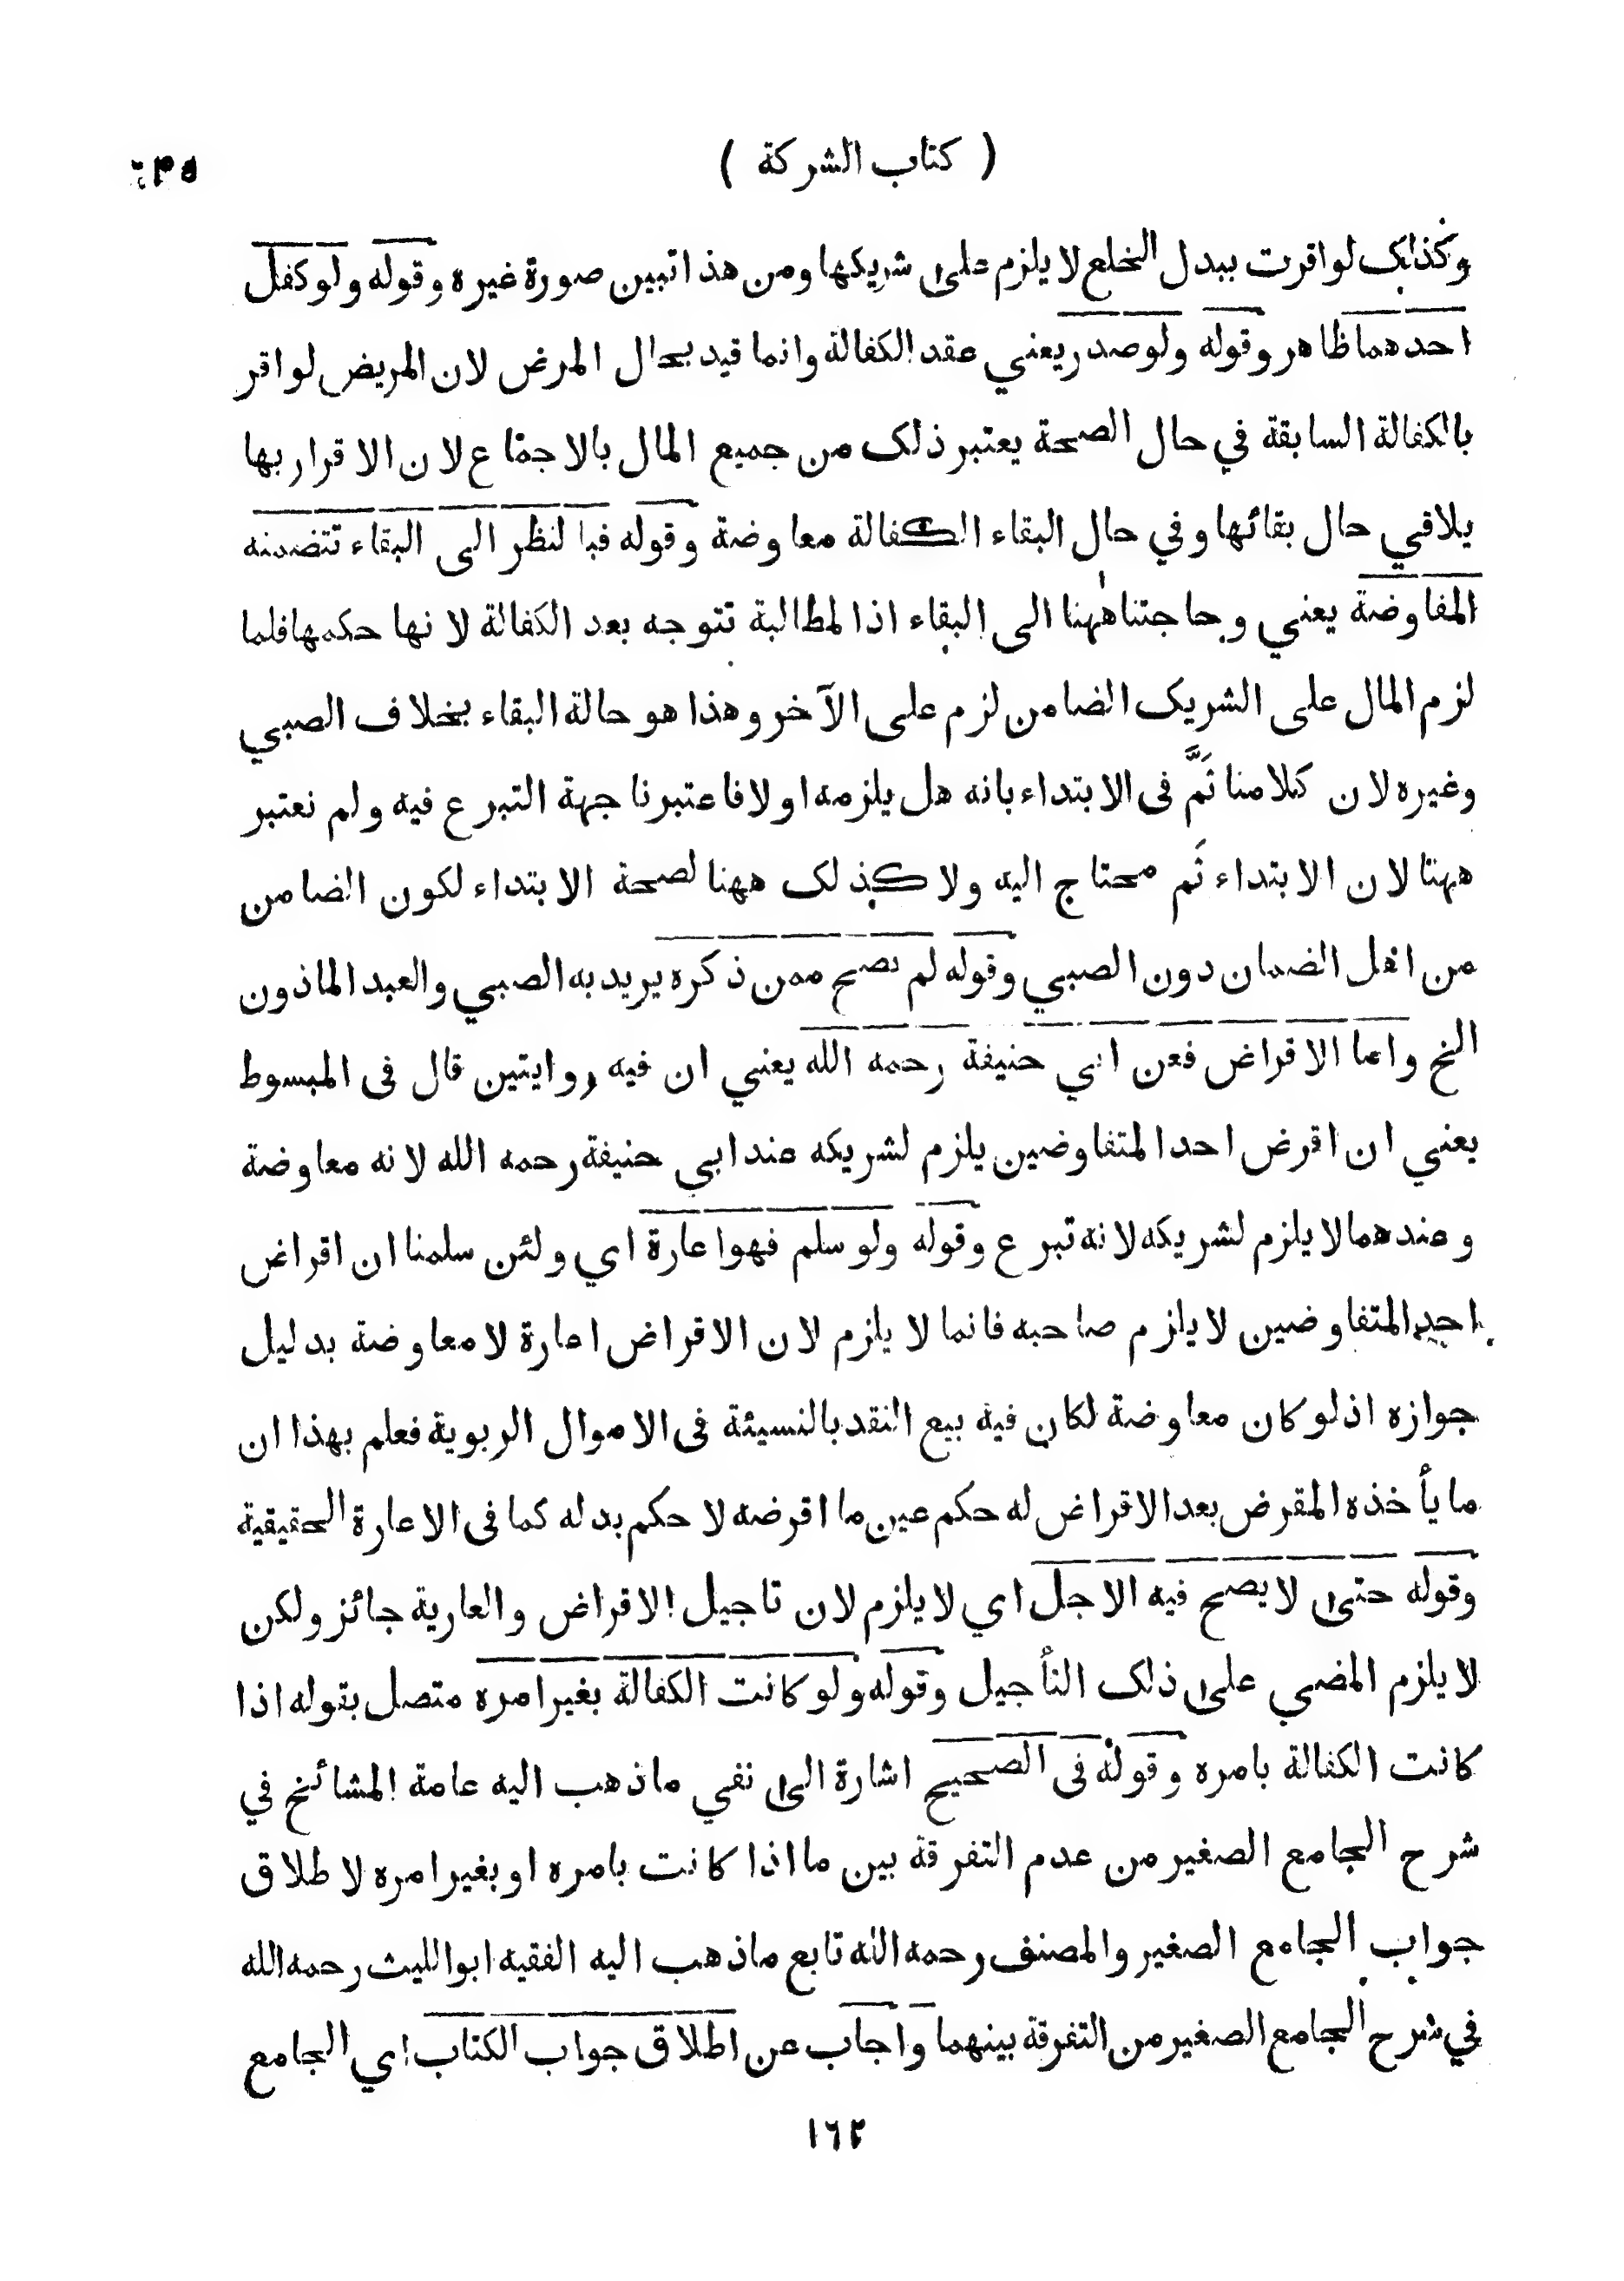 ( كتاب الشركة )
وكذلك لو اقرت ببدل الخلع لا يلزم على شريكها ومن هذا تبين صورة غيره وقوله ولو كفل
احدهما ظاهر وقوله ولو صدر يعني عقد الكفالة وانما قيد بحال المرض لان المريض لو اقر
بالكفالة السابقة في حال الصحة يعتبر ذلك من جميع المال بالاجماع لان الاقرار بها
يلاقي حال بقائها وفي حال البقاء الكفالة معاوضة وقوله فبالنظر الى البقاء تتضمنه
المفاوضة يعني وحاجتنا ههنا الى البقاء اذ المطالبة تتوجه بعد الكفالة لانها حكمها فلما
لزم المال على الشريك الضامن لزم على الآخر وهذا هو حالة البقاء بخلاف الصبي
وغيره لان كلامنا ثَمَّ فى الابتداء بانه هل يلزمه او لا فاعتبرنا جهة التبرع فيه ولم نعتبر
ههنا لان الابتداء ثَم محتاج اليه ولا كذلك ههنا لصحة الابتداء لكون الضامن
من اهل الضمان دون الصبي وقوله لم تصح ممن ذكره يريد به الصبي والعبد الماذون
الخ واما الاقراض فعن ابي حنيفة رحمه الله يعني ان فيه روايتين قال فى المبسوط
يعني ان اقرض احد المتفاوضين يلزم لشريكه عند ابي حنيفة رحمه الله لانه معاوضة
وعندهما لا يلزم لشريكه لانه تبرع وقوله ولو سلم فهو اعارة اي ولئن سلمنا ان اقراض
احد المتفاوضين لا يلزم صاحبه فانما لا يلزم لان الاقراض اعارة لا معاوضة بدليل
جوازه اذ لو كان معاوضة لكان فيه بيع النقد بالنسيئة فى الاموال الربوية فعلم بهذا ان
ما يأخذه المقرض بعد الاقراض له حكم عين ما اقرضه لا حكم بدله كما فى الاعارة الحقيقية
وقوله حتى لا يصح فيه الاجل اي لا يلزم لان تاجيل الاقراض والعارية جائز ولكن
لا يلزم المضي على ذلك التأجيل وقوله ولو كانت الكفالة بغير امره متصل بقوله اذا
كانت الكفالة بامره وقوله فى الصحيح اشارة الى نفي ما ذهب اليه عامة المشائخ في
شرح الجامع الصغير من عدم التفرقة بين ما اذا كانت بامره او بغير امره لاطلاق
جواب الجامع الصغير والمصنف رحمه الله تابع ما ذهب اليه الفقيه ابو الليث رحمه الله
في شرح الجامع الصغير من التفرقة بينهما واجاب عن اطلاق جواب الكتاب اي الجامع
١٦٢